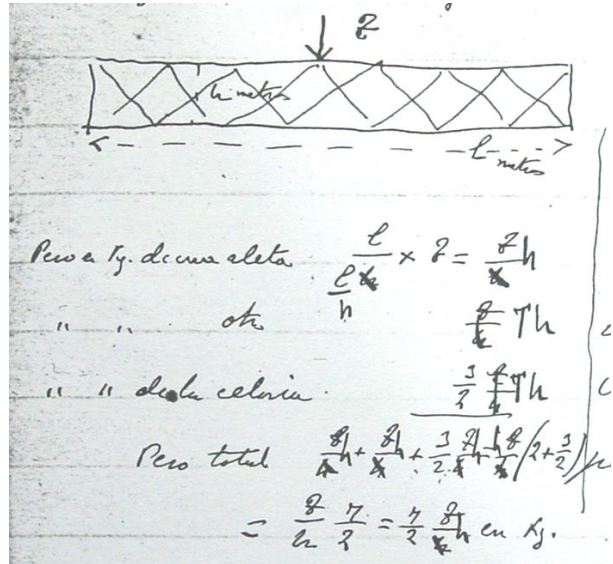 q
h metros
l metros
Peso en Kg. de una aleta l/(l/h) × q = q h
" " otra q h
" " de la celosía 3/2 q h
Peso total q h + q h + 3/2 q h = h q (2 + 3/2)
= q/h 7/2 = 7/2 q h en Kg.